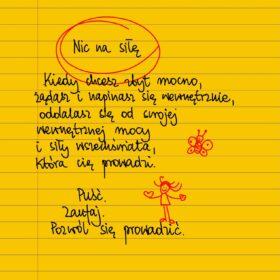 Nic na siłę
Kiedy chcesz zbyt mocno,
żądasz i napinasz się wewnętrznie,
oddalasz się od swojej
wewnętrznej mocy
i siły wszechświata,
która cię prowadzi.
Puść.
Zaufaj.
Pozwól się prowadzić.